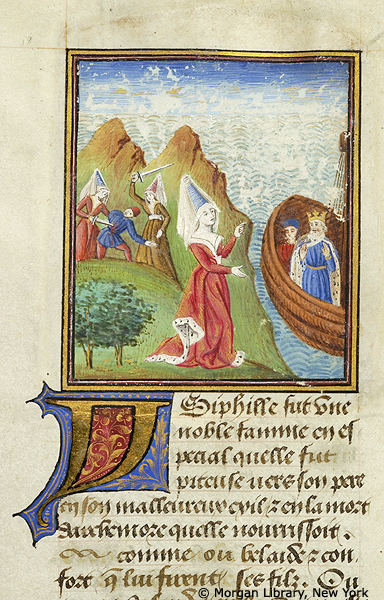 Ysiphille fut vne
noble famme en es
pecial quelle fut
piteuse vers son pere
en son malleureux exil ⁊ en la mort
darchemore quelle nourrissoit.
comme ou belaide ⁊ con
fort q̃ lui firent ses filz. Ou
© Morgan Library, New York